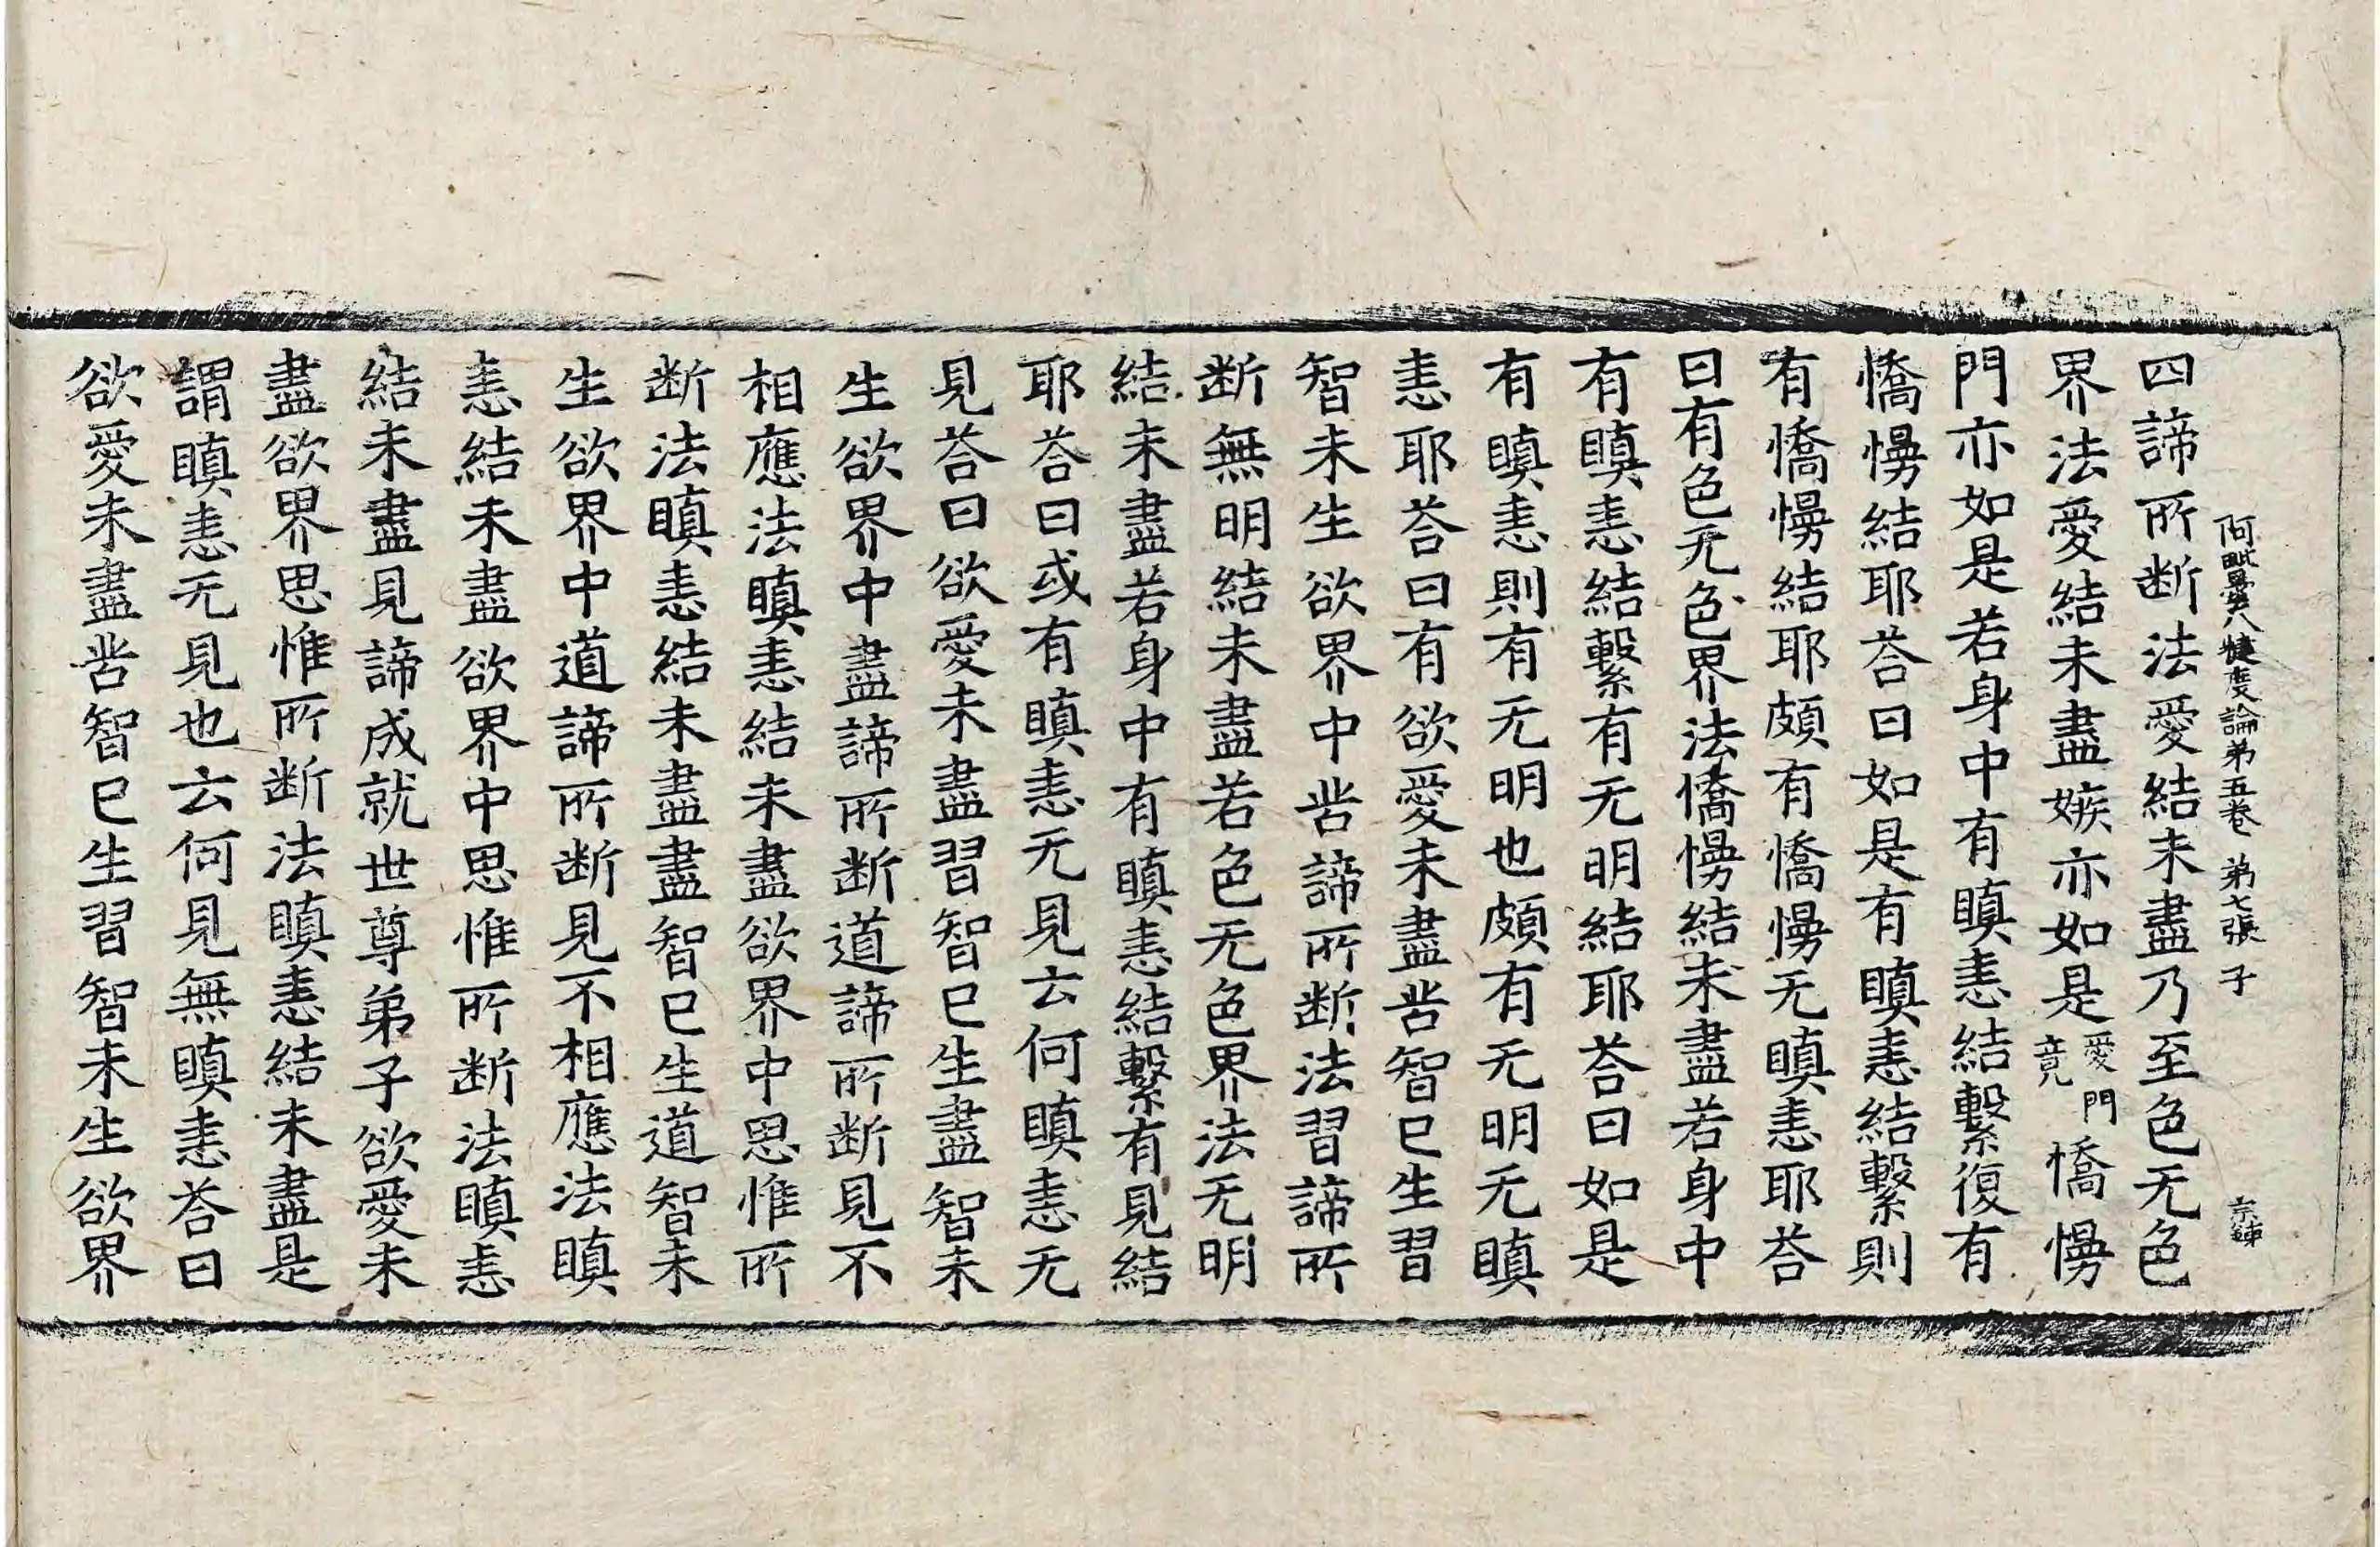 阿毗曇八犍度論第五卷 第七張 子
四諦所断法愛結未盡乃至色无色
界法愛結未盡嫉亦如是愛門竟憍慢
門亦如是若身中有瞋恚結繫復有
憍慢結耶荅曰如是有瞋恚結繫則
有憍慢結耶頗有憍慢无瞋恚耶荅
曰有色无色界法憍慢結未盡若身中
有瞋恚結繫有无明結耶荅曰如是
有瞋恚則有无明也頗有无明无瞋
恚耶荅曰有欲愛未盡苦智已生習
智未生欲界中苦諦所断法習諦所
断無明結未盡若色无色界法无明
結未盡若身中有瞋恚結繫有見結
耶荅曰或有瞋恚无見云何瞋恚无
見荅曰欲愛未盡習智已生盡智未
生欲界中盡諦所断道諦所断見不
相應法瞋恚結未盡欲界中思惟所
断法瞋恚結未盡盡智已生道智未
生欲界中道諦所断見不相應法瞋
恚結未盡欲界中思惟所断法瞋恚
結未盡見諦成就世尊弟子欲愛未
盡欲界思惟所断法瞋恚結未盡是
謂瞋恚无見也云何見無瞋恚荅曰
欲愛未盡苦智已生習智未生欲界